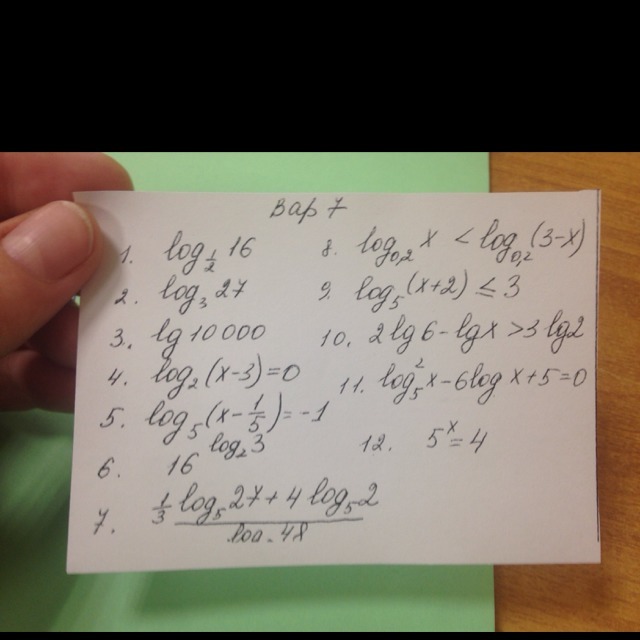 Вар 7
1. log_{1/2} 16
2. log_3 27
3. lg 10 000
4. log_2 (x-3) = 0
5. log_5 (x - 1/5) = -1
6. 16^{log_2 3}
7. (1/3 log_5 27 + 4 log_5 2) / log 48
8. log_{0,2} x < log_{0,2} (3-x)
9. log_5 (x+2) ≤ 3
10. 2 lg 6 - lg x > 3 lg 2
11. log_5^2 x - 6 log x + 5 = 0
12. 5^x = 4